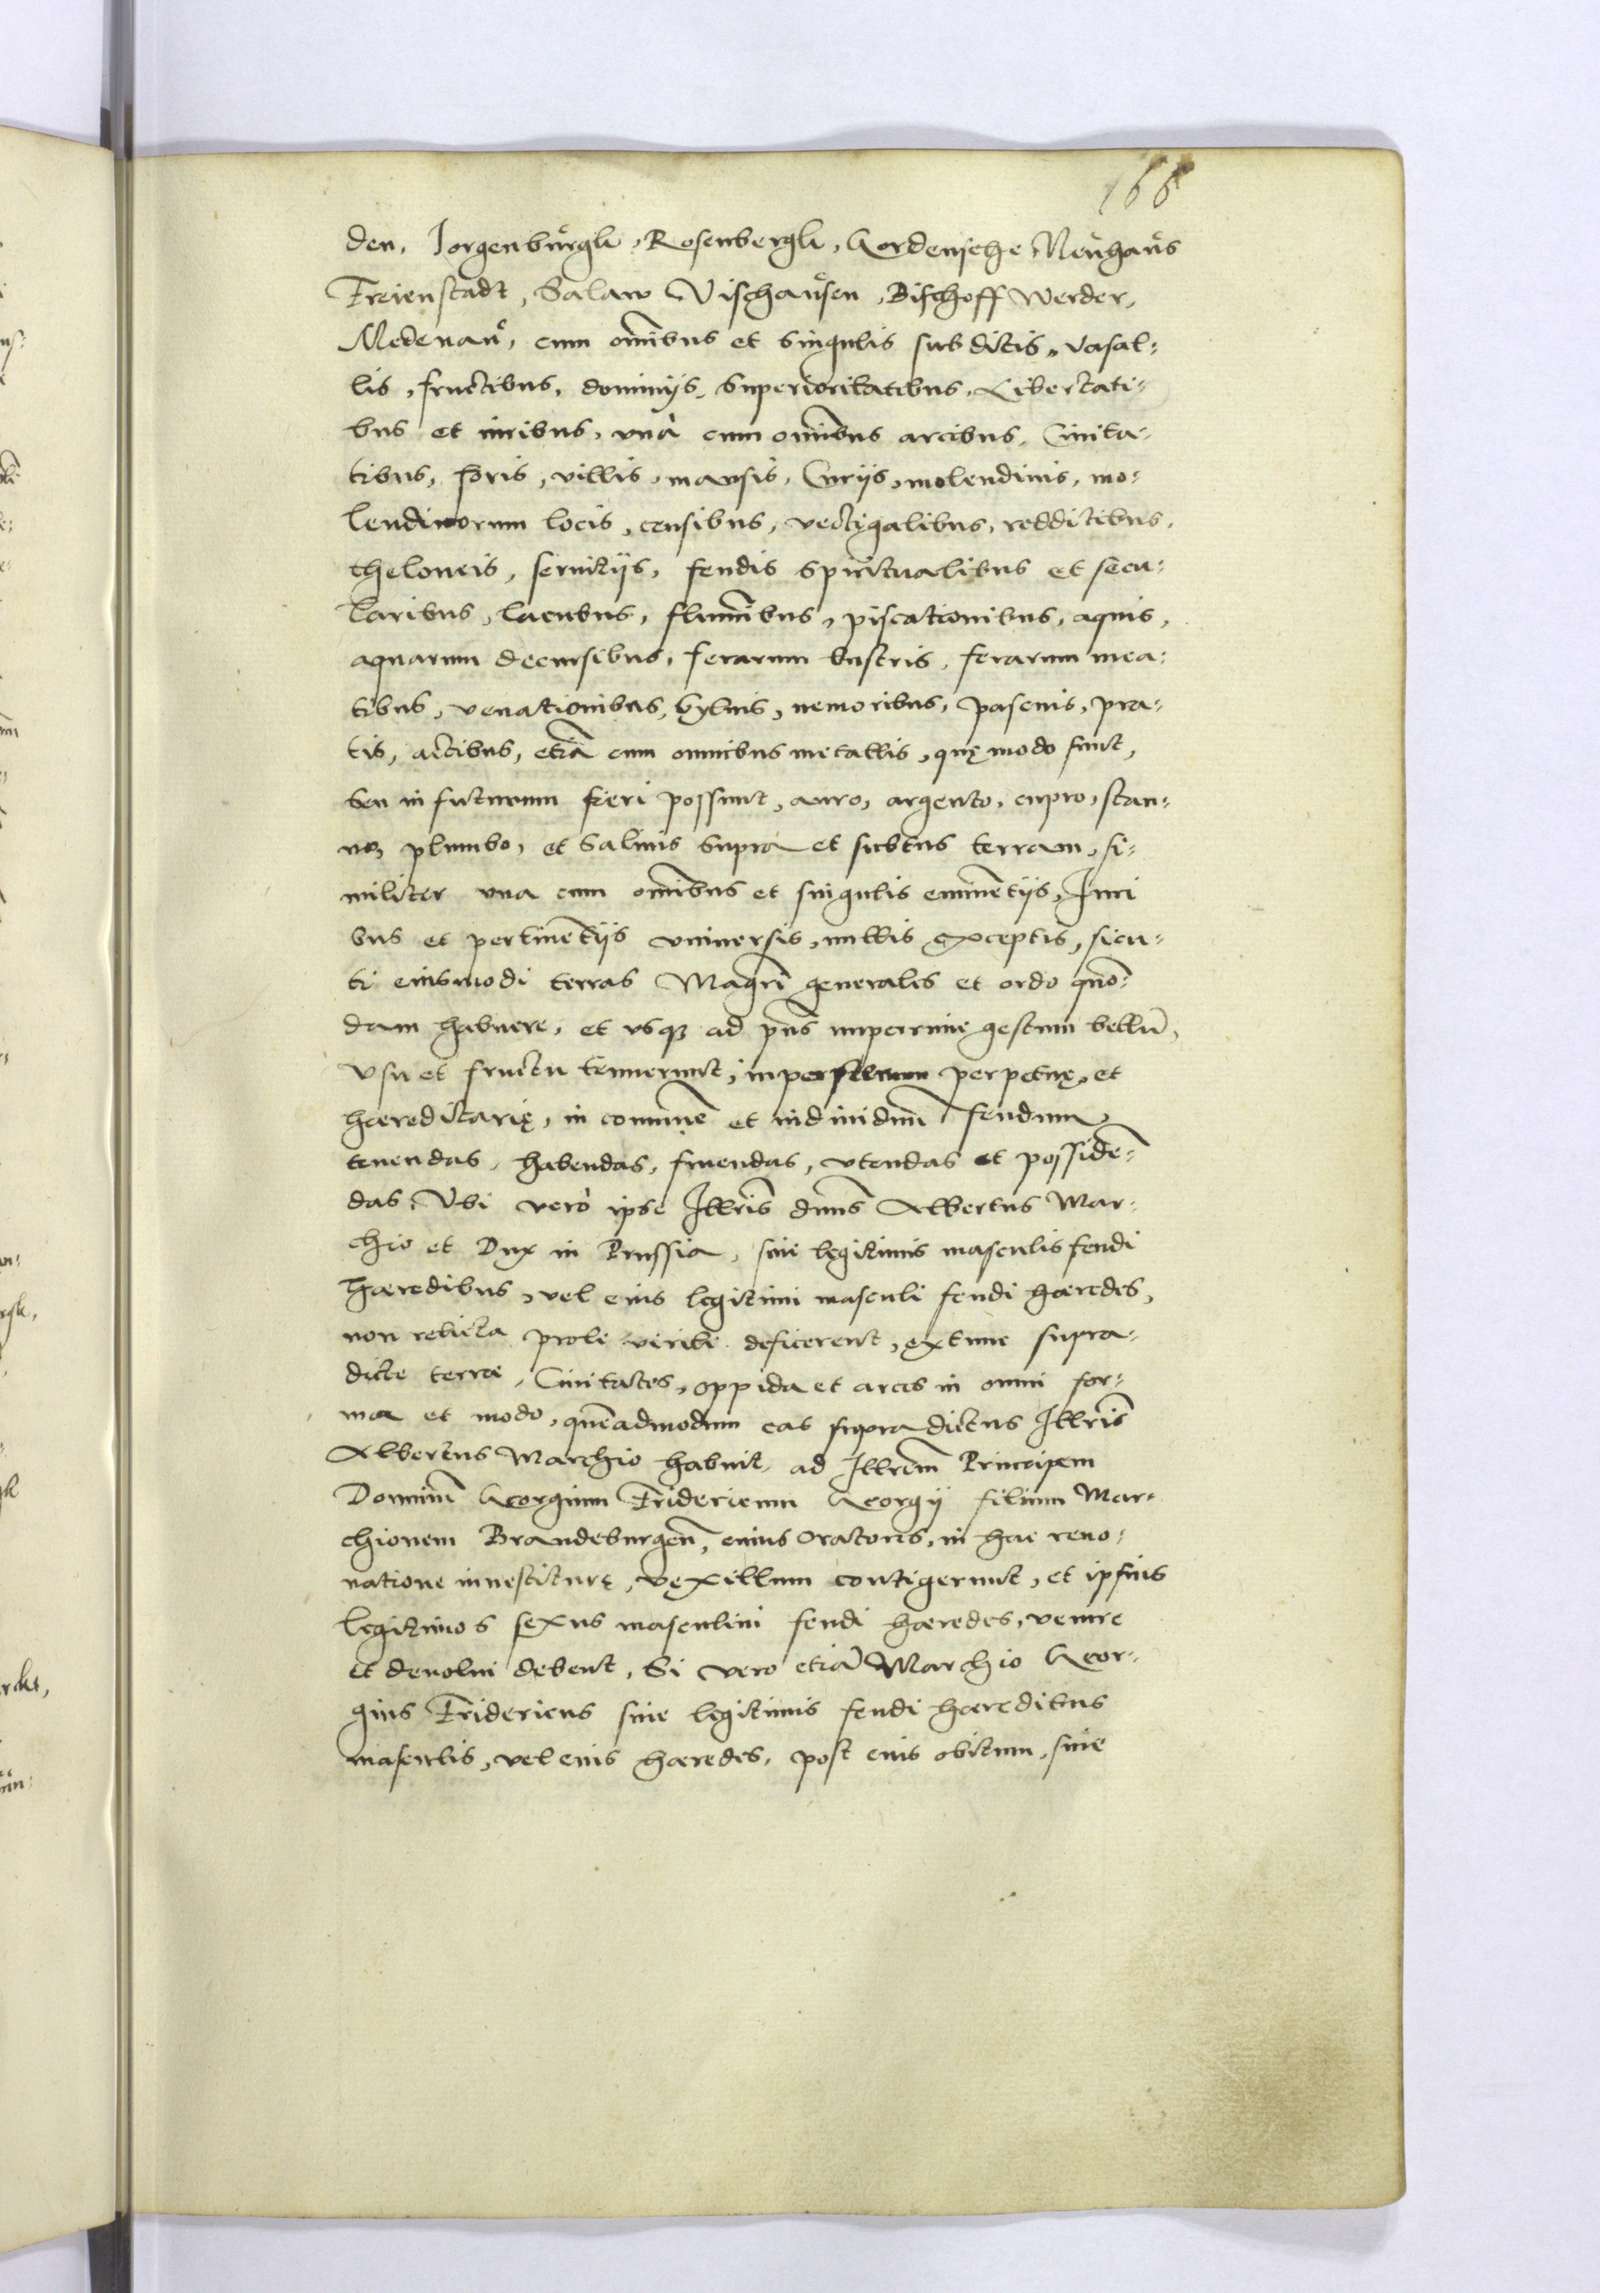 166
den, Jorgenburgk, Rosenbergk, Gordensehe, Neuhaus
Freienstadt, Salaw Vischausen, Bischoff Werder,
Medenaů, cum omibus et singulis subditis, vasal-
lis, fructibus, dominijs, superioritatibus, Libertati-
bus et iuribus, vnà cum omibus arcibus, Ciuita-
tibus, foris, villis, mansis, Curijs, molendinis, mo-
lendinorum locis, censibus, vectigalibus, redditibus,
theloneis, seruitijs, feudis spiritualibus et secu-
laribus, lacubus, fluminibus, piscationibus, aquis,
aquarum decursibus, ferarum lustris, ferarum mea-
tibus, venationibus, syluis, nemoribus, pascuis, pra-
tis, artibus, etiā cum omnibus metallis, quę modo sunt,
seu in futurum fieri possunt, auro, argento, cupro, stan-
no, plumbo, et salinis supra et subtus terram, si-
militer vna cum omibus et singulis eminētijs, Iuri
bus et pertinētijs vniuersis, nullis exceptis, sicu-
ti eiusmodi terras Magrī generales et ordo quō-
dam habuere, et vsqȝ ad pn̄s nuperrime gestum bellū,
vsu et fructu tenuerunt, in perpetuum perpetuę, et
hæreditarię, in comune et indiuiduū feudum
tenendas, habendas, fruendas, vtendas et possidē-
das. Vbi verò ipse Illris dn̄us Albertus Mar-
chio et Dux in Prussia, sine legitimis masculis feudi
hæredibus, vel eius legitimi masculi feudi hæredes,
non relicta prole virili deficerent, extunc supra-
dicte terræ, Ciuitates, oppida et arces in omni for-
ma et modo, quēadmodum eas supra dictus Illris
Albertus Marchio habuit, ad Illrem Principem
Dominū Georgium Fridericum Georgij filium Mar-
chionem Brandeburgen̄, cuius Oratores, in hac reno-
uatione inuestiturę, vexillum contigerunt, et ipsius
legitimos sexus masculini feudi hæredes, venire
et deuolui debent, Si vero etiā Marchio Geor-
gius Fridericus sine legitimis feudi hæredibus
masculis, vel eius hæredes, post eius obitum, sine